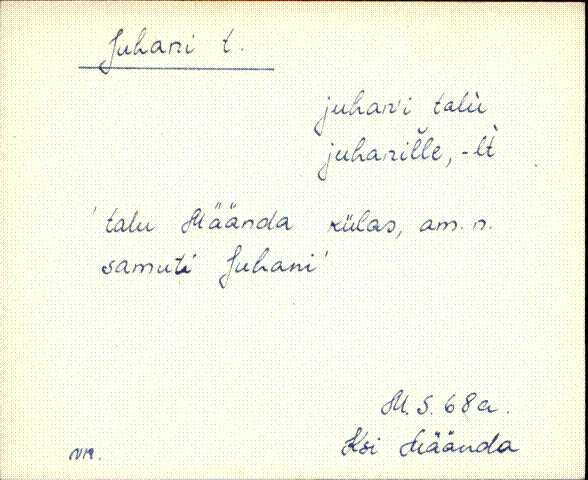 Juhani t.
juhan'i talù
juhanil̆le, -lt̀
'talu Mäända külas, am. n.
samuti Juhani'
M. S. 68a.
Ksi Mäända